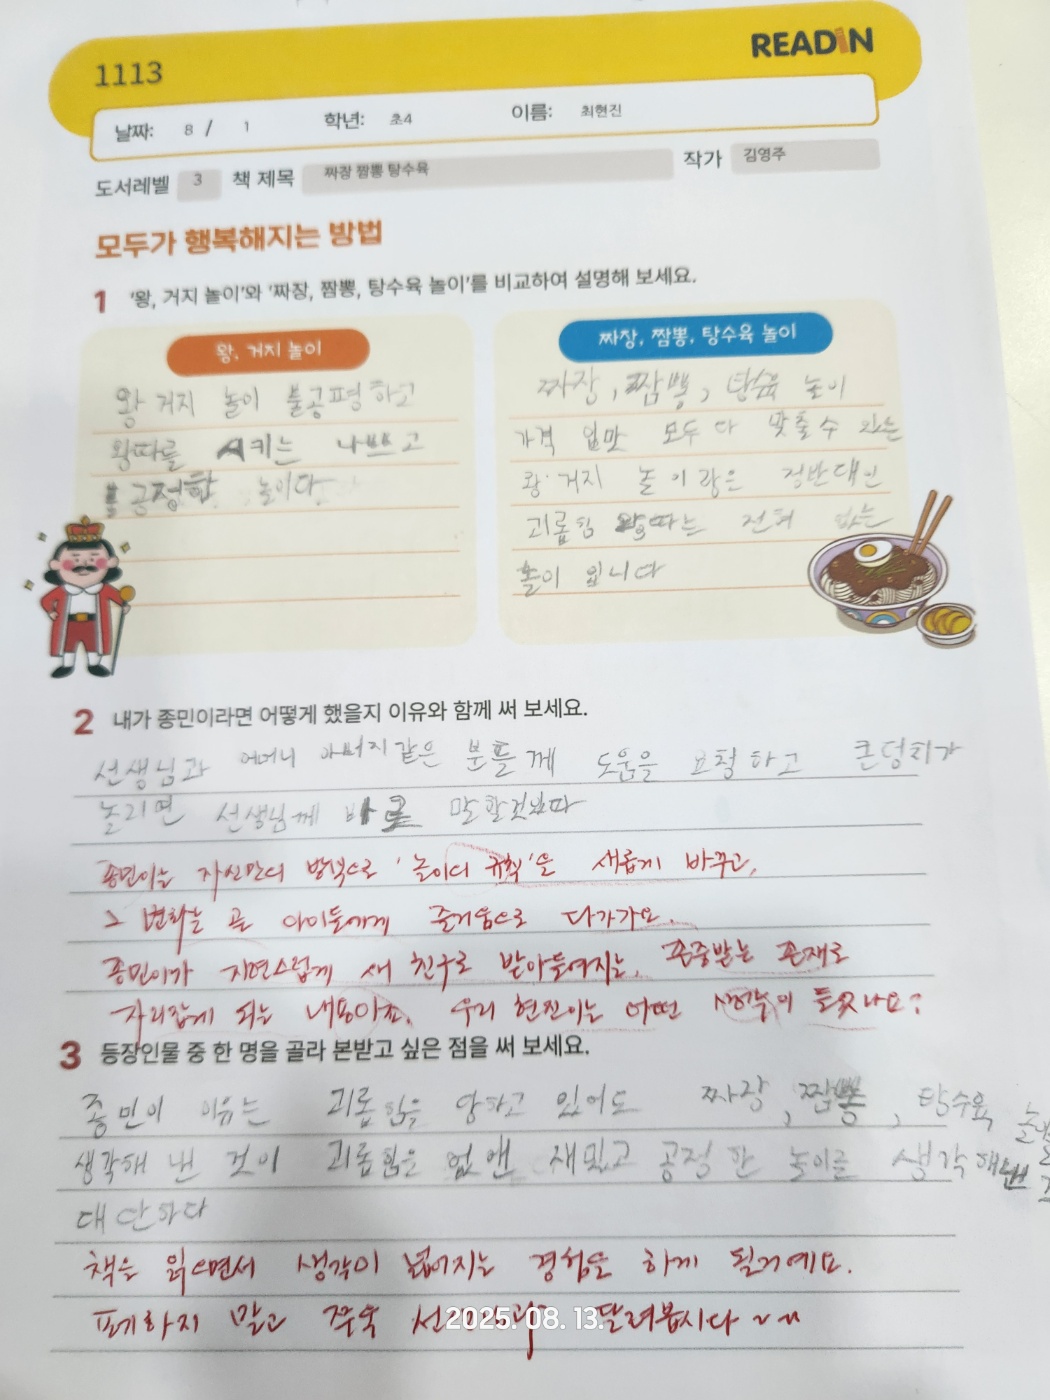 READiN
1113
날짜: 8 / 1 학년: 초4 이름: 최현진
도서레벨 3 책 제목 짜장 짬뽕 탕수육 작가 김영주
모두가 행복해지는 방법
1 '왕, 거지 놀이'와 '짜장, 짬뽕, 탕수육 놀이'를 비교하여 설명해 보세요.
왕, 거지 놀이
왕 거지 놀이 불공평하고
왕따를 시키는 나쁘고
긍정함 놀이다
짜장, 짬뽕, 탕수육 놀이
짜장, 짬뽕, 탕육 놀이
가격 입맛 모두 다 맞출수 있는
왕·거지 놀이랑은 정반대인
괴롭힘 왕따는 전혀 없는
놀이 입니다
2 내가 종민이라면 어떻게 했을지 이유와 함께 써 보세요.
선생님과 어머니 아버지같은 분들께 도움을 요청하고 큰덩치가
놀리면 선생님께 바로 말할것이다
종민이는 자신만의 방식으로 '놀이의 규칙'을 새롭게 바꾸고,
그 변화는 곧 아이들에게 즐거움으로 다가가요.
종민이가 자연스럽게 새 친구로 받아들여지는, 존중받는 존재로
자리잡게 되는 내용이죠. 우리 현진이는 어떤 생각이 들었나요?
3 등장인물 중 한 명을 골라 본받고 싶은 점을 써 보세요.
종민이 이유는 괴롭힘을 당하고 있어도 짜장, 짬뽕, 탕수육
생각해 낸 것이 괴롭힘은 없앤 재밌고 공정한 놀이를 생각해낸
대단하다
책을 읽으면서 생각이 넓어지는 경험을 하게 될거예요.
포기하지 말고 쭈욱 달려봅시다~~
2025. 08. 13.